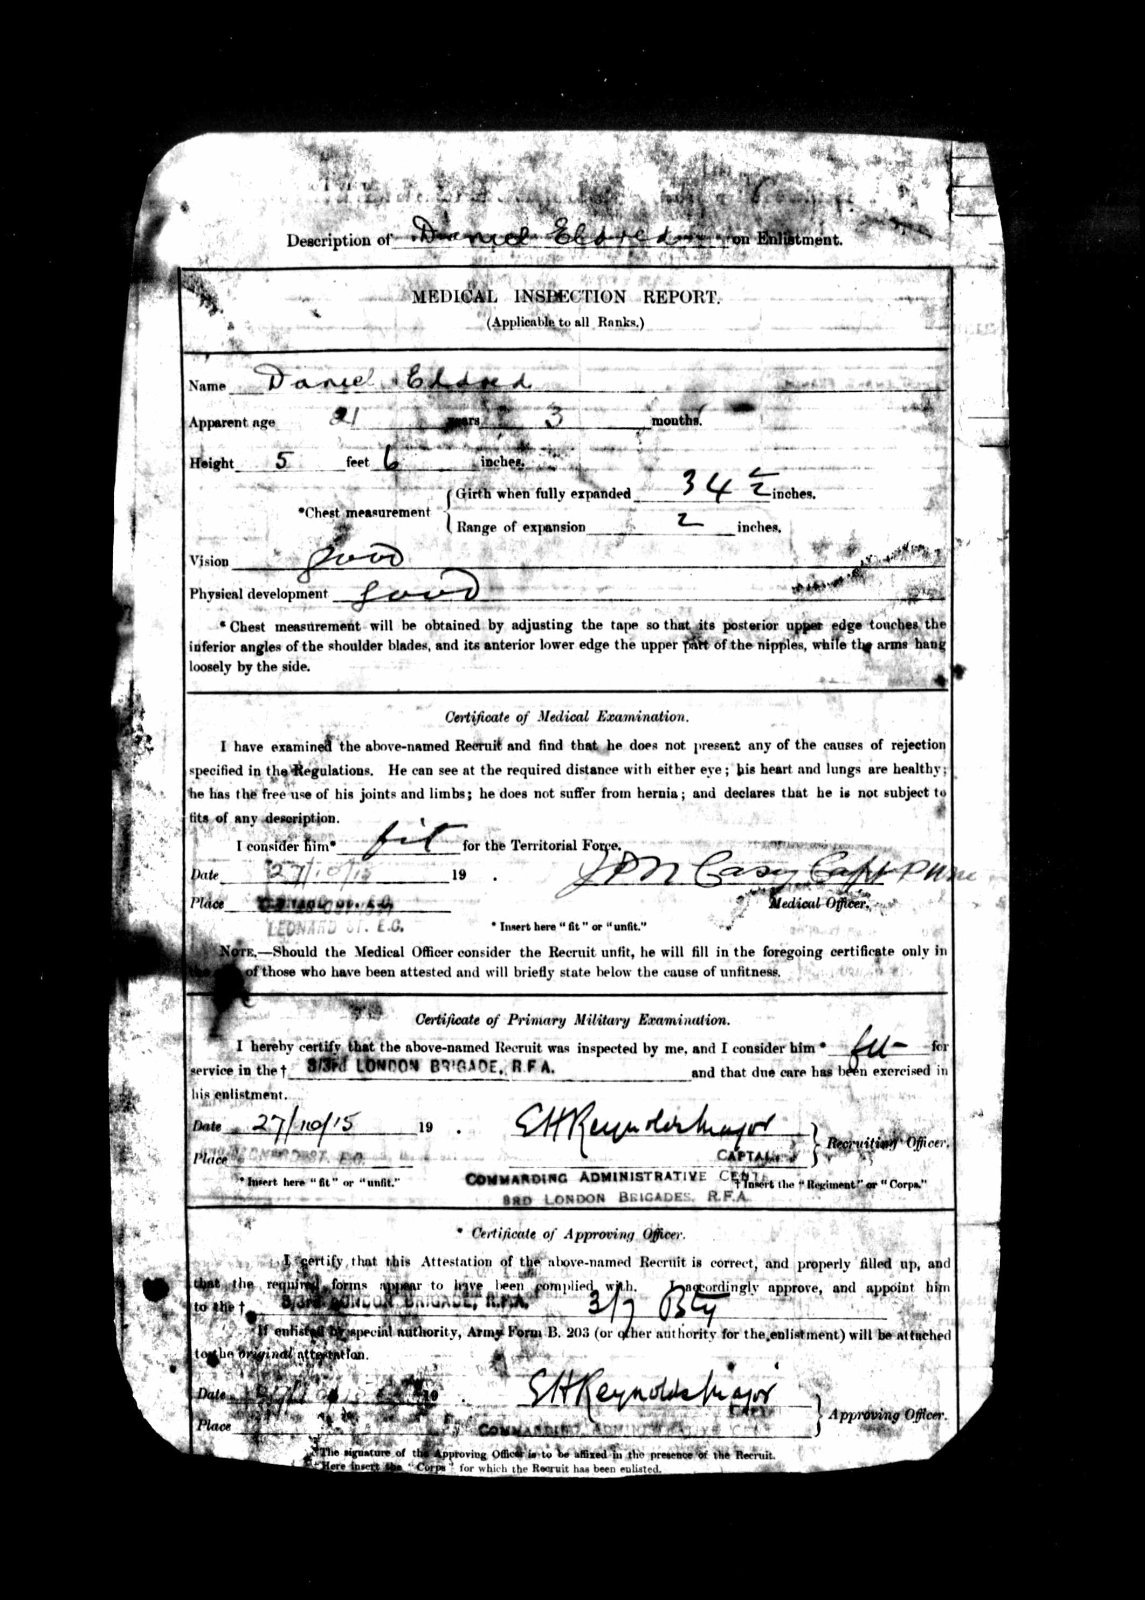 Description of Daniel Eldred on Enlistment.
MEDICAL INSPECTION REPORT.
(Applicable to all Ranks.)
Name Daniel Eldred
Apparent age 21 years 3 months.
Height 5 feet 6 inches.
Girth when fully expanded 34 1/2 inches.
*Chest measurement
Range of expansion 2 inches.
Vision good
Physical development good
* Chest measurement will be obtained by adjusting the tape so that its posterior upper edge touches the
inferior angles of the shoulder blades, and its anterior lower edge the upper part of the nipples, while the arms hang
loosely by the side.
Certificate of Medical Examination.
I have examined the above-named Recruit and find that he does not present any of the causes of rejection
specified in the Regulations. He can see at the required distance with either eye; his heart and lungs are healthy;
he has the free use of his joints and limbs; he does not suffer from hernia; and declares that he is not subject to
fits of any description.
I consider him* fit for the Territorial Force.
Date 27/10/15 19 .
Casey Capt
Place
Medical Officer.
LEONARD ST. E.C.
* Insert here "fit" or "unfit."
NOTE.—Should the Medical Officer consider the Recruit unfit, he will fill in the foregoing certificate only in
of those who have been attested and will briefly state below the cause of unfitness.
Certificate of Primary Military Examination.
I hereby certify that the above-named Recruit was inspected by me, and I consider him * fit for
service in the † 3/3rd LONDON BRIGADE, R.F.A. and that due care has been exercised in
his enlistment.
Date 27/10/15 19 .
E H Reynolds Major
Recruiting Officer.
Place LEONARD ST. E.C.
CAPTAIN
* Insert here "fit" or "unfit."
COMMANDING ADMINISTRATIVE CENT
† Insert the "Regiment" or "Corps."
3RD LONDON BRIGADES, R.F.A.
* Certificate of Approving Officer.
I certify that this Attestation of the above-named Recruit is correct, and properly filled up, and
that the required forms appear to have been complied with. I accordingly approve, and appoint him
to the † 3/3rd LONDON BRIGADE, R.F.A. 3/7 Bty
If enlisted by special authority, Army Form B. 203 (or other authority for the enlistment) will be attached
to the original attestation.
Date 19 .
E H Reynolds Major
Approving Officer.
Place
COMMANDING ADMINISTRATIVE
* The signature of the Approving Officer is to be affixed in the presence of the Recruit.
† Here insert the "Corps" for which the Recruit has been enlisted.